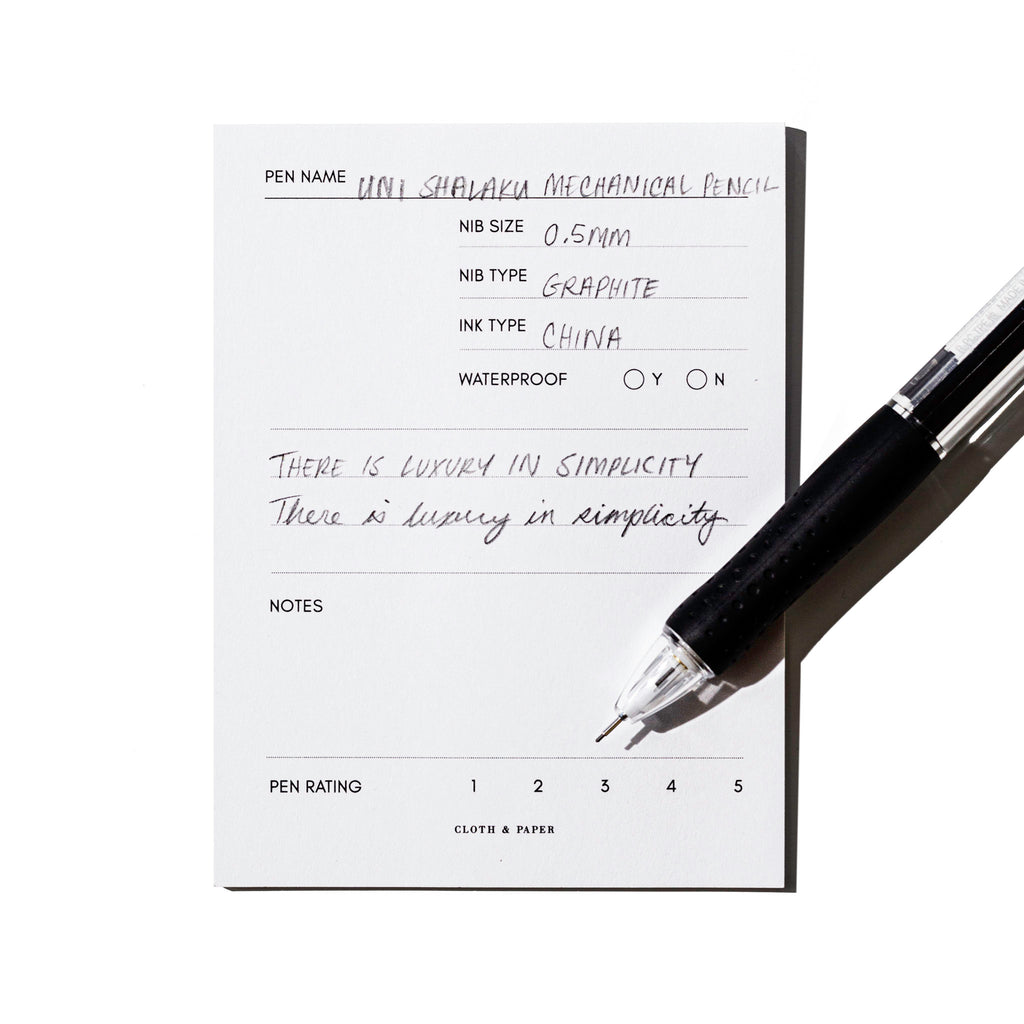 PEN NAME UNI SHALAKU MECHANICAL PENCIL
NIB SIZE 0.5MM
NIB TYPE GRAPHITE
INK TYPE CHINA
WATERPROOF Y N
THERE IS LUXURY IN SIMPLICITY
There is luxury in simplicity
NOTES
PEN RATING 1 2 3 4 5
CLOTH & PAPER